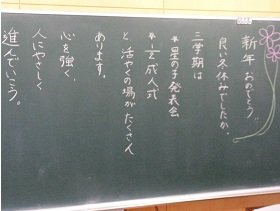 新年おめでとう!!
良い冬休みでしたか。
三学期は
*星の子発表会
*1/2成人式
と活やくの場がたくさん
あります。
心を強く、
人にやさしく
進んでいこう。